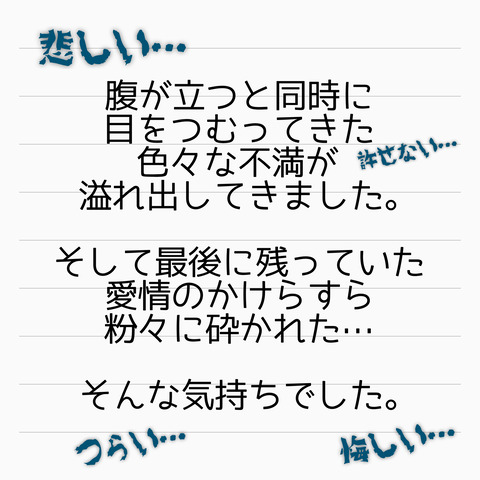 悲しい…
腹が立つと同時に
目をつむってきた
色々な不満が
許せない…
溢れ出してきました。
そして最後に残っていた
愛情のかけらすら
粉々に砕かれた…
そんな気持ちでした。
つらい…
悔しい…